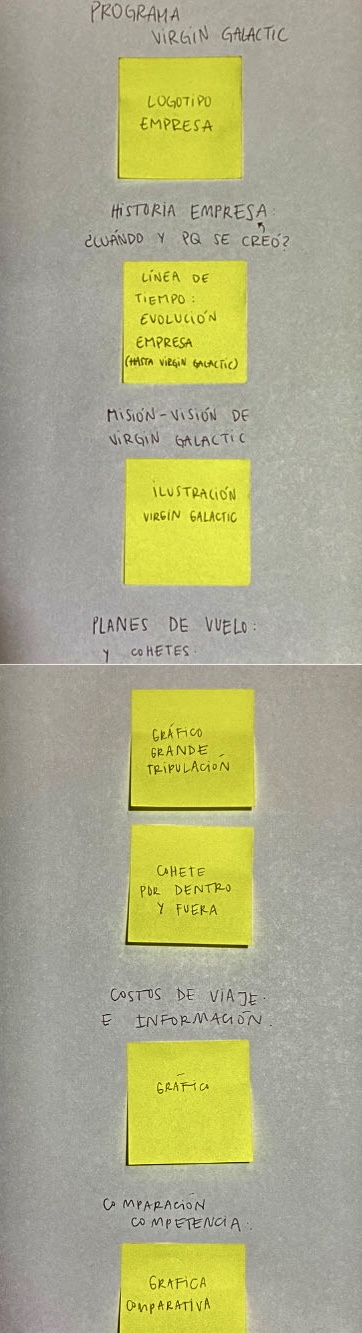 PROGRAMA
VIRGIN GALACTIC
LOGOTIPO
EMPRESA
HISTORIA EMPRESA:
¿CUÁNDO Y PQ SE CREÓ?
LÍNEA DE
TIEMPO:
EVOLUCIÓN
EMPRESA
(HASTA VIRGIN GALACTIC)
MISIÓN-VISIÓN DE
VIRGIN GALACTIC
ILUSTRACIÓN
VIRGIN GALACTIC
PLANES DE VUELO:
Y COHETES.
GRÁFICO
GRANDE
TRIPULACIÓN
COHETE
POR DENTRO
Y FUERA
COSTOS DE VIAJE.
E INFORMACIÓN.
GRÁFICO
COMPARACIÓN
COMPETENCIA:
GRAFICA
COMPARATIVA